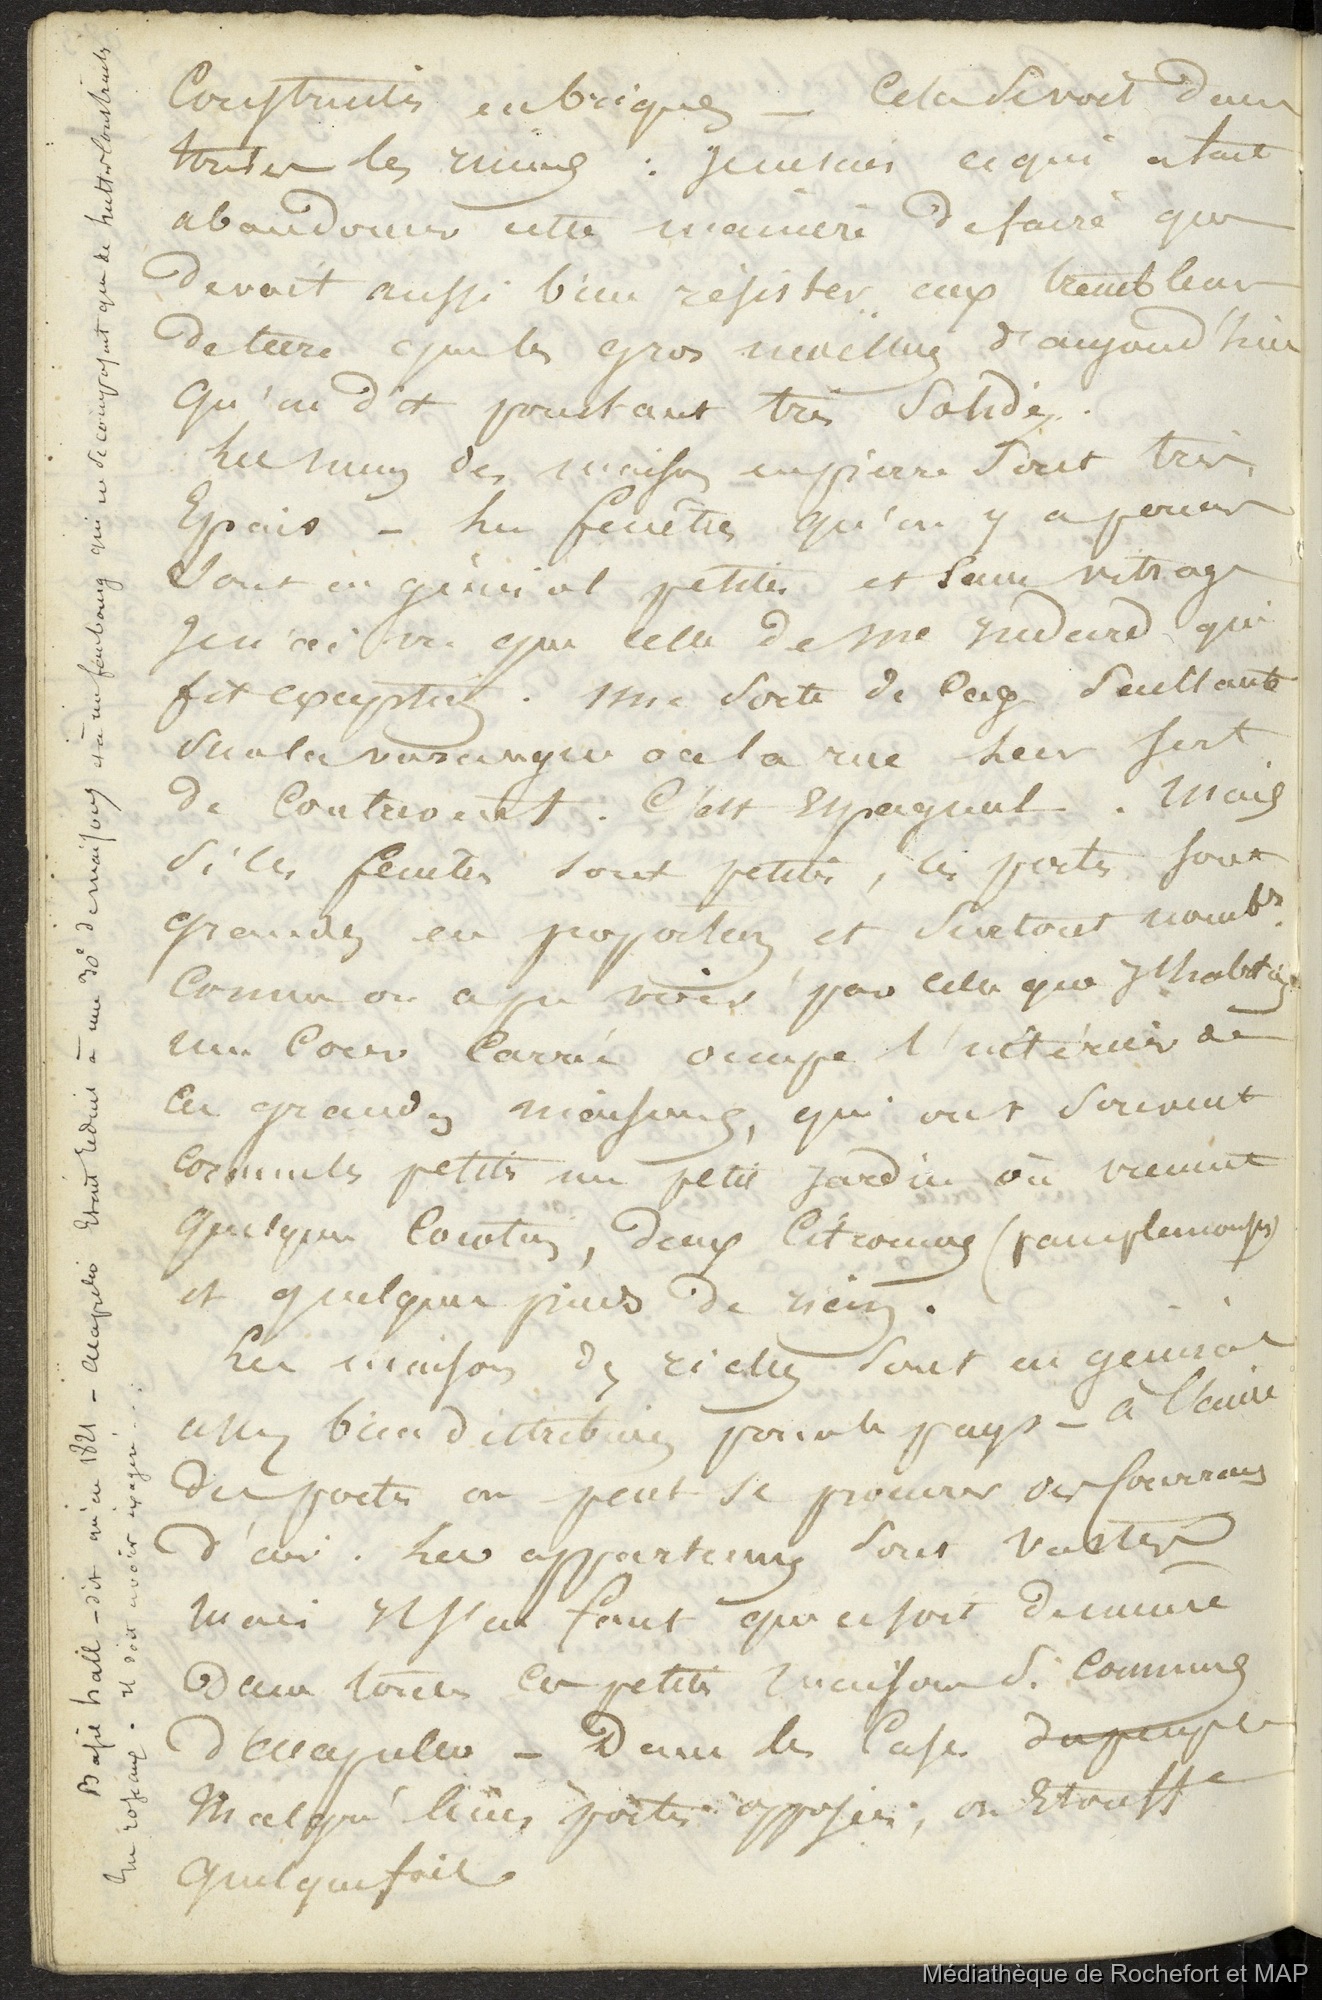 Construites en briques _ Cela devoit dans
les ruines : Je ne sais ce qui a fait
abandonner cette manière de faire que
devoit aussi bien résister aux tremblem
de terre que les gros moëllons d'aujourd'hui
Qu'on dit pourtant très Solides.
Les murs des maisons en pierre Sont très
Epais _ Les fenêtres qu'on y a percées
Sont en général petites et Sans vitrage
Je n'ai vu que celle de Mr qui
fit exception. Une Sorte de Cage Saillante
Sur la varangue ou la rue leur sert
de Contrevent. C'est Espagnol. Mais
Si les fenêtres sont petites, les portes sont
grandes en proportion et Surtout nombr.
Comme on a pu voir par celle que J'habitais
une Cour Carrée occupe l'intérieur de
Ces grandes maisons, qui ont Souvent
comme les petites un petit Jardin où viennent
Quelques Cocotiers, deux Citronniers (pamplemousses)
et quelques pieds de ricin.
Les maisons des riches Sont en général
assez bien distribuées pour le pays _ à l'aide
des portes on peut se procurer des Courrans
d'air. Les appartemens Sont Vastes
Mais Il s'en faut que ce soit de même
Dans toutes Ces petites maisons Si Communes
d'Accapulco _ Dans les Cases du peuple
Malgré leurs portes opposées, on Etouffe
Quelquefois
Basil hall _ dit qu'en 1821 _ Acapulco Etait Réduit à une 30e de maisons et à un faubourg qui ne se composait que de huttes Construites
En roseaux. Il doit avoir exagéré...
Médiathèque de Rochefort et MAP